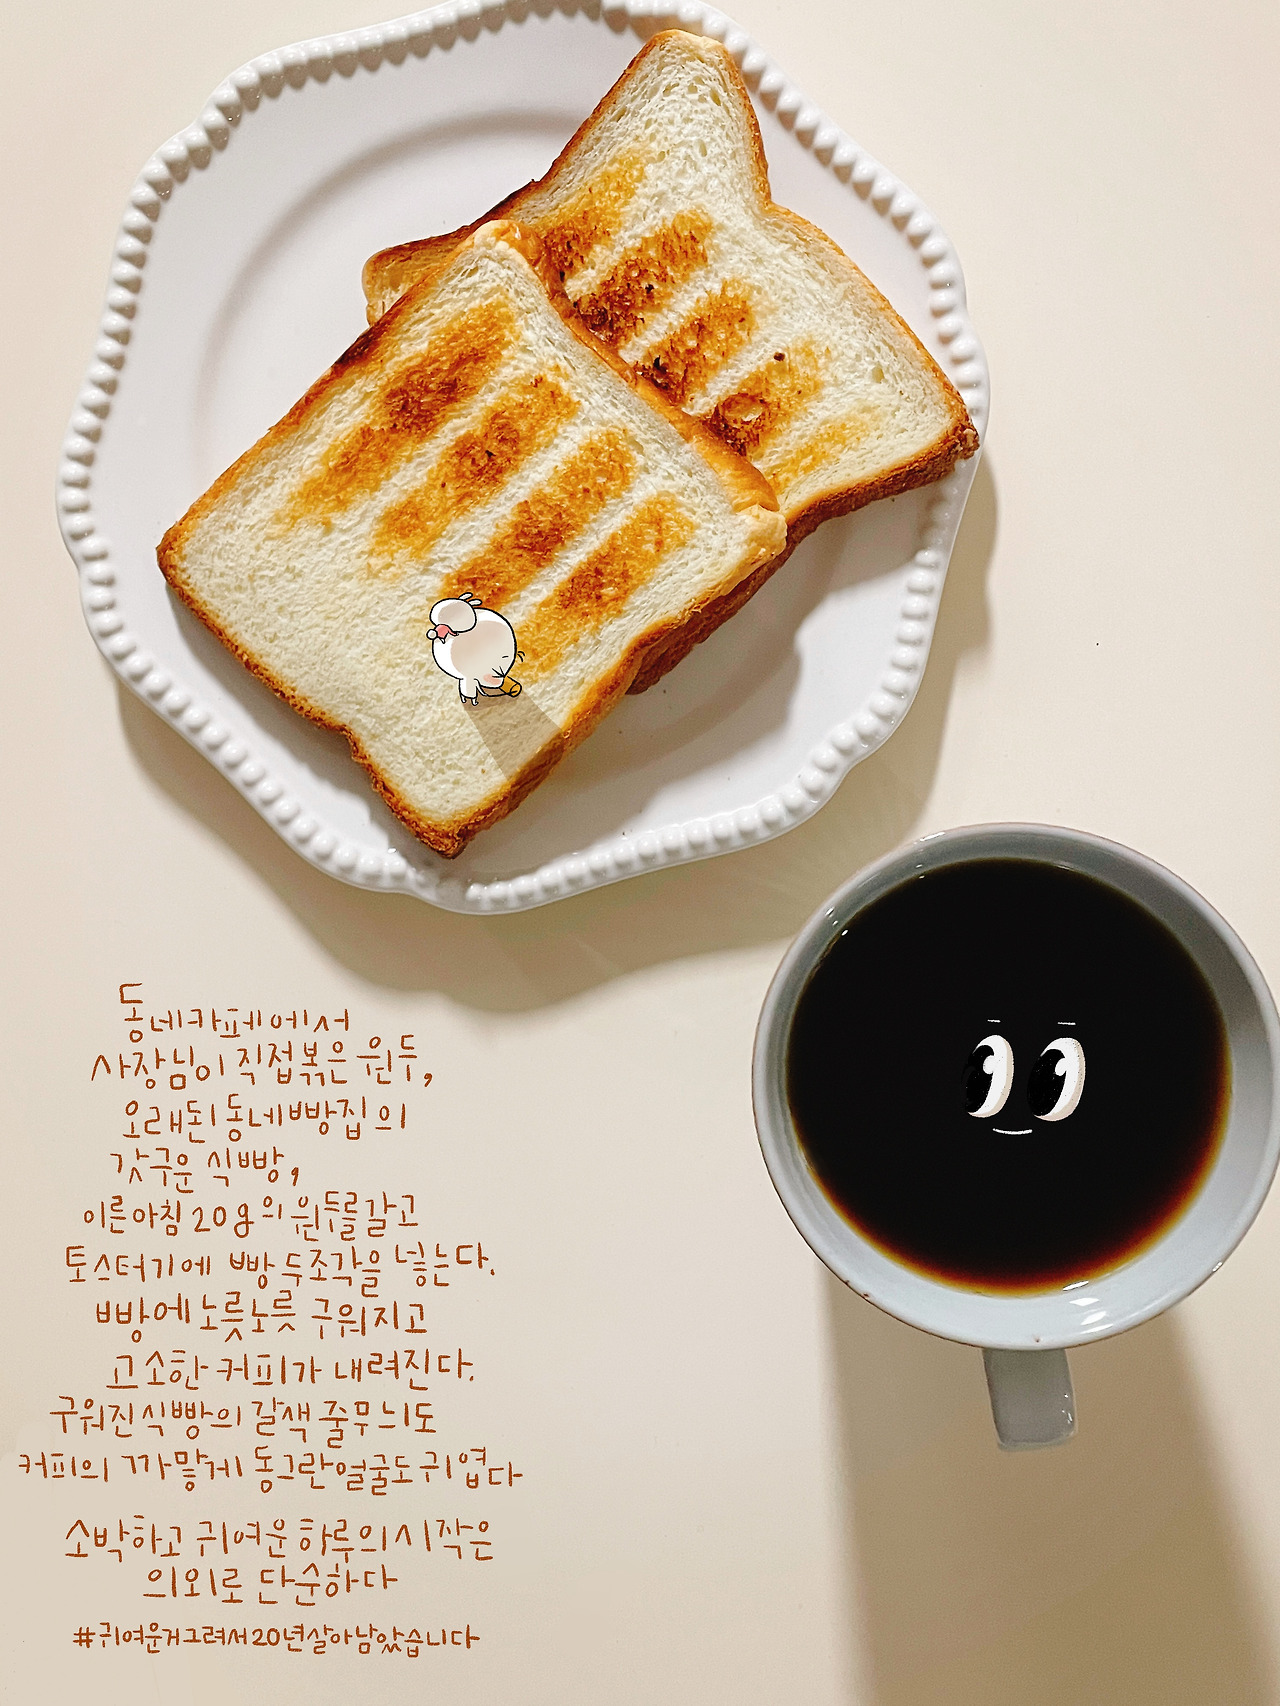 동네카페에서
사장님이 직접볶은 원두,
오래된 동네빵집의
갓구운 식빵,
이른아침 20g의 원두를갈고
토스터기에 빵 두조각을 넣는다.
빵에 노릇노릇 구워지고
고소한 커피가 내려진다.
구워진식빵의 갈색 줄무늬도
커피의 까맣게 동그란얼굴도귀엽다
소박하고 귀여운하루의시작은
의외로 단순하다
#귀여운거그려서20년살아남았습니다